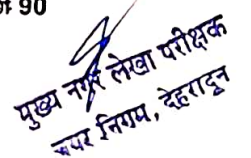 90
मुख्य नगर लेखा परीक्षक
नगर निगम, देहरादून